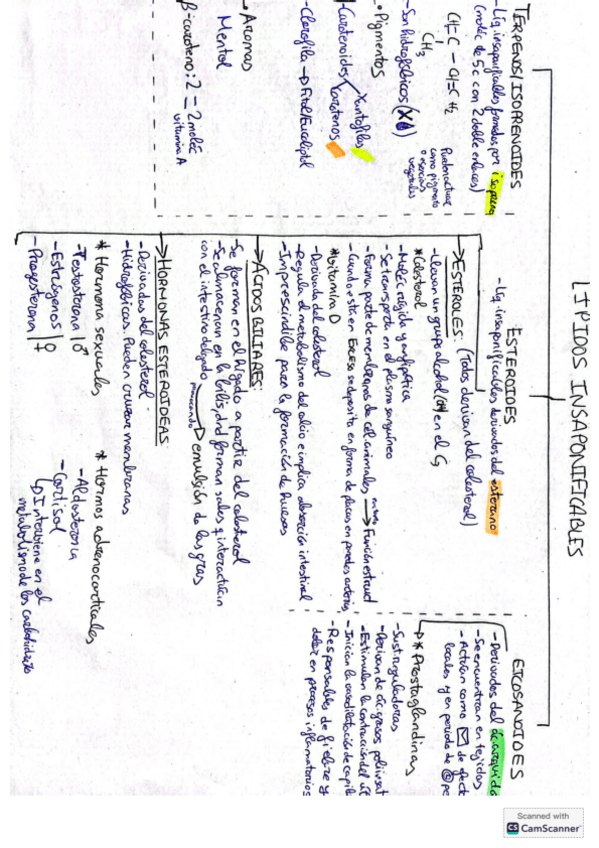 LIPIDOS INSAPONIFICABLES
TERPENOS/ISOPRENOIDES
-Líq. insaponificables formados por isopreno
(moléc de 5c con 2 doble enlaces)
CH=C-CH=CH2
CH3
como pigmento
o esencias
vegetales
-Son hidrofóbicos
• Pigmentos
Carotenoides
Xantofilas
Carotenos
-Clorofila → Fitol/Eucaliptol
• Aromas
Mental
β-caroteno: 2 = 2 moléc
vitamina A
ESTEROIDES
-Líq. insaponificables derivados del esterano
(Todos derivan del colesterol)
→ESTEROLES:
-Llevan un grupo alcohol (OH) en el C3
*Colesterol
-Moléc rígida y anfipática
-Se transporta en el plasma sanguíneo
-Forma parte de membranas de cél animales → Función estruct
-Cuando está en Exceso se deposita en forma de placas en paredes arterias
*Vitamina D
-Derivada del colesterol
-Regula el metabolismo del calcio e implica absorción intestinal
-Imprescindible para la formación de huesos
→ACIDOS BILIARES:
-Se forman en el hígado a partir del colesterol
-Se almacenan en la bilis, dnd forman sales q interactúan
con el intestino delgado → emulsión de las gras
provocando
→HORMONAS ESTEROIDEAS:
-Derivadas del colesterol
-Hidrofóbicas. Pueden cruzar membranas
* Hormona sexuales
-Testosterona | ♂
-Estrógenos | ♀
-Progesterona
* Hormos adrenocorticales
-Aldosterona
-Cortisol
↳ Interviene en el
metabolismo de los carbohidrato
EICOSANOIDES
-Derivados del ác. araquido
-Se encuentran en tejidos
-Actúan como ✉ de efect
locales y en periodo de
→*Prostaglandinas
-Sust. reguladoras
-Derivan de ác. grasos poliinsat
-Estimulan la contracción del
-Inician la vasodilatación de capil
-Responsables de fiebre y
dolor en procesos inflamatorios
Scanned with
CS CamScanner